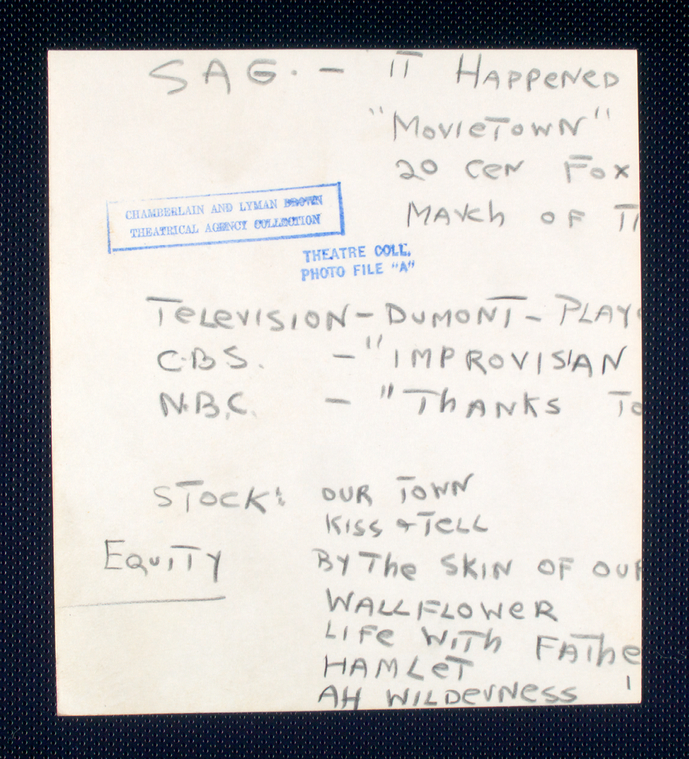 SAG. - IT HAPPENED
"MOVIETOWN"
20 CEN FOX
MARCH OF
CHAMBERLAIN AND LYMAN BROWN
THEATRICAL AGENCY COLLECTION
THEATRE COLL.
PHOTO FILE "A"
TELEVISION - DUMONT - PLAY
C.B.S. - "IMPROVISIAN
N.B.C. - "THANKS TO
STOCK: OUR TOWN
KISS & TELL
EQUITY BY THE SKIN OF OUR
WALLFLOWER
LIFE WITH FATHE
HAMLET
AH WILDERNESS